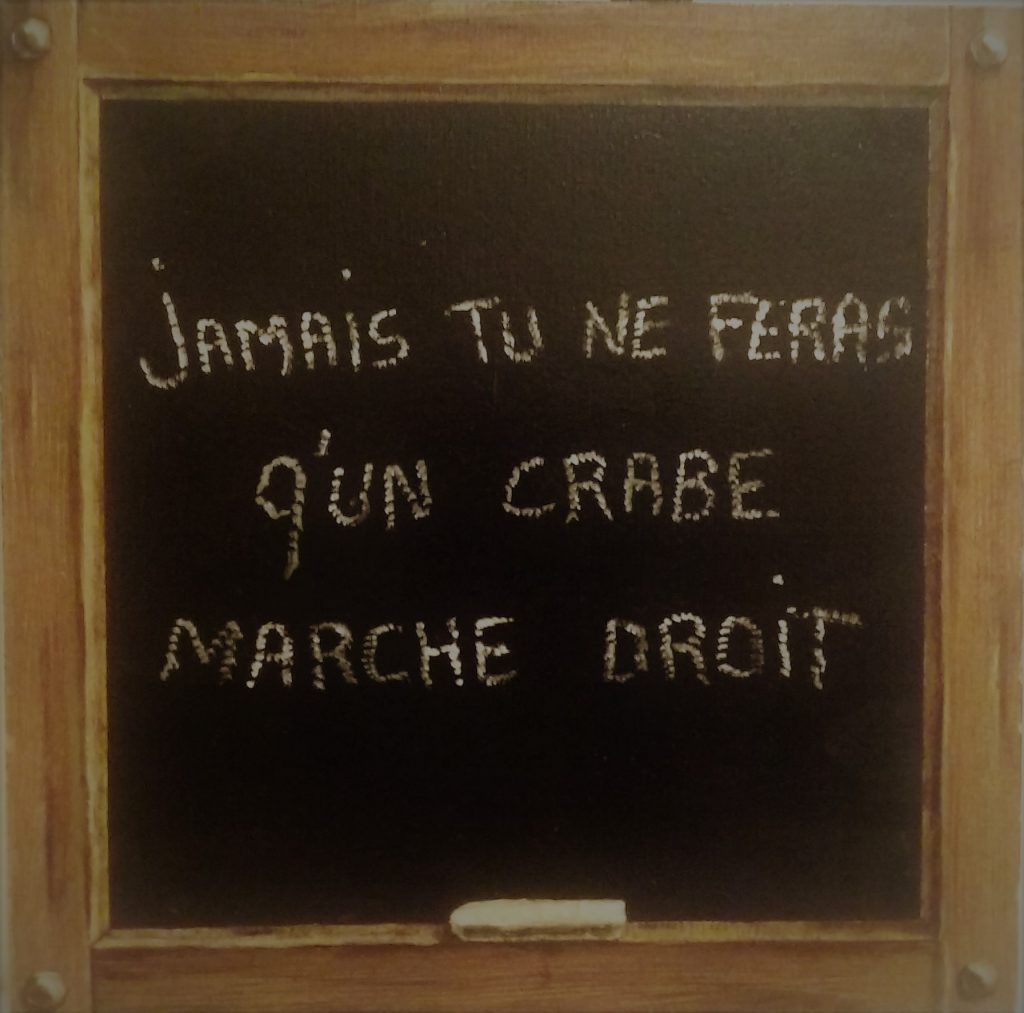 jAMAiS TU NE FERAS
q'UN CRABE
MARCHE DROiT